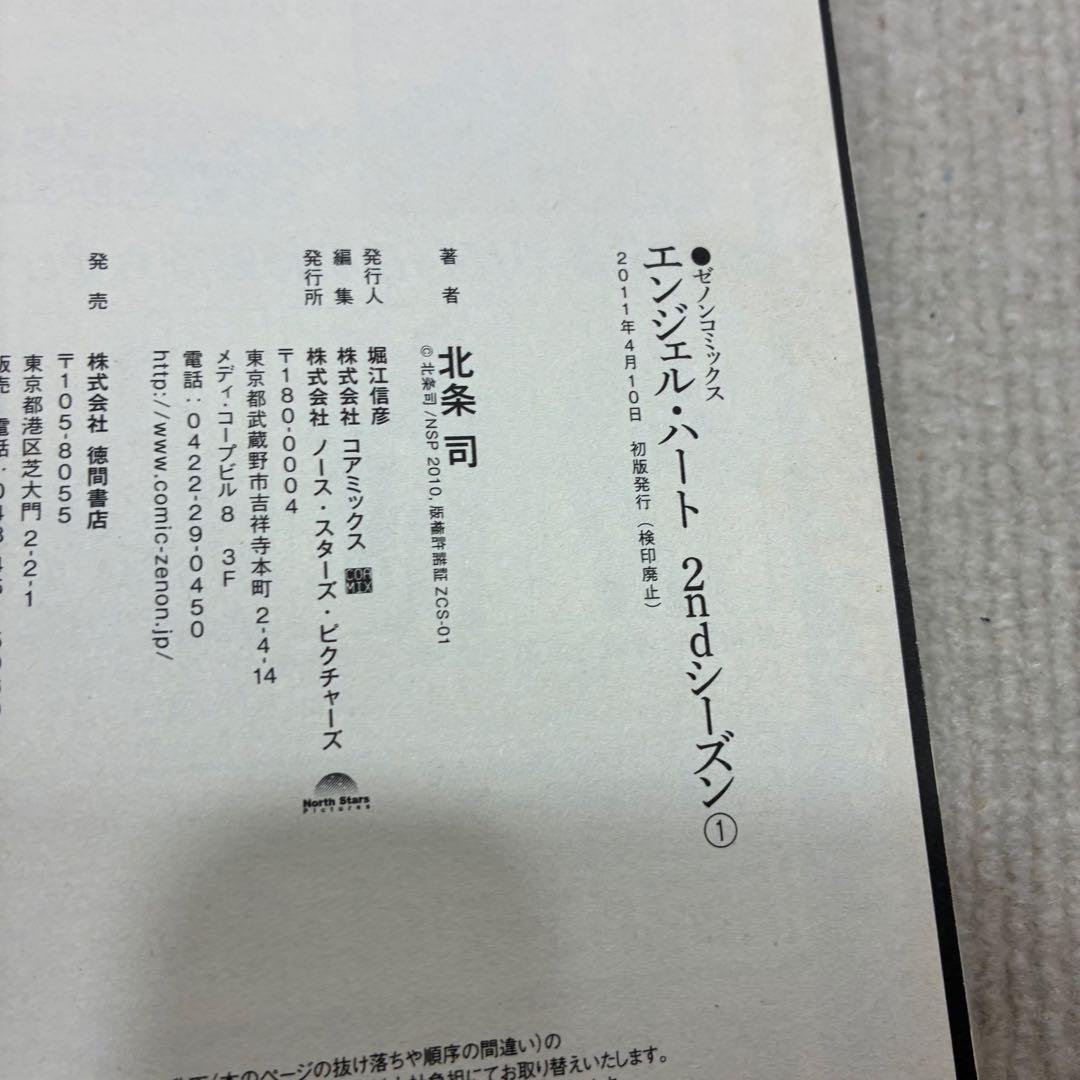 ●ゼノンコミックス
エンジェル・ハート 2ndシーズン①
2011年4月10日 初版発行(検印廃止)
著者 北条 司
©北条司/NSP 2010,版権許諾証 ZCS-01
発行人 堀江信彦
編集 株式会社 コアミックス COAMIX
発行所 株式会社 ノース・スターズ・ピクチャーズ
North Stars
Pictures
〒180-0004
東京都武蔵野市吉祥寺本町 2-4-14
メディ・コープビル8 3F
電話:0422-29-0450
http://www.comic-zenon.jp/
発売 株式会社 徳間書店
〒105-8055
東京都港区芝大門 2-2-1
販売 電話:
(本のページの抜け落ちや順序の間違い)の
負担にてお取り替えいたします。